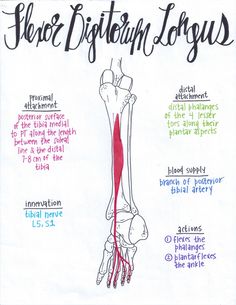 Flexor Digitorum Longus
proximal
attachment
posterior surface
of the tibia medial
to PT along the length
between the soleal
line & the distal
7-8 cm of the
tibia
innervation
tibial nerve
L5, S1
distal
attachment
distal phalanges
of the 4 lesser
toes along their
plantar aspects
blood supply
branch of posterior
tibial artery
actions
① flexes the
phalanges
② plantarflexes
the ankle